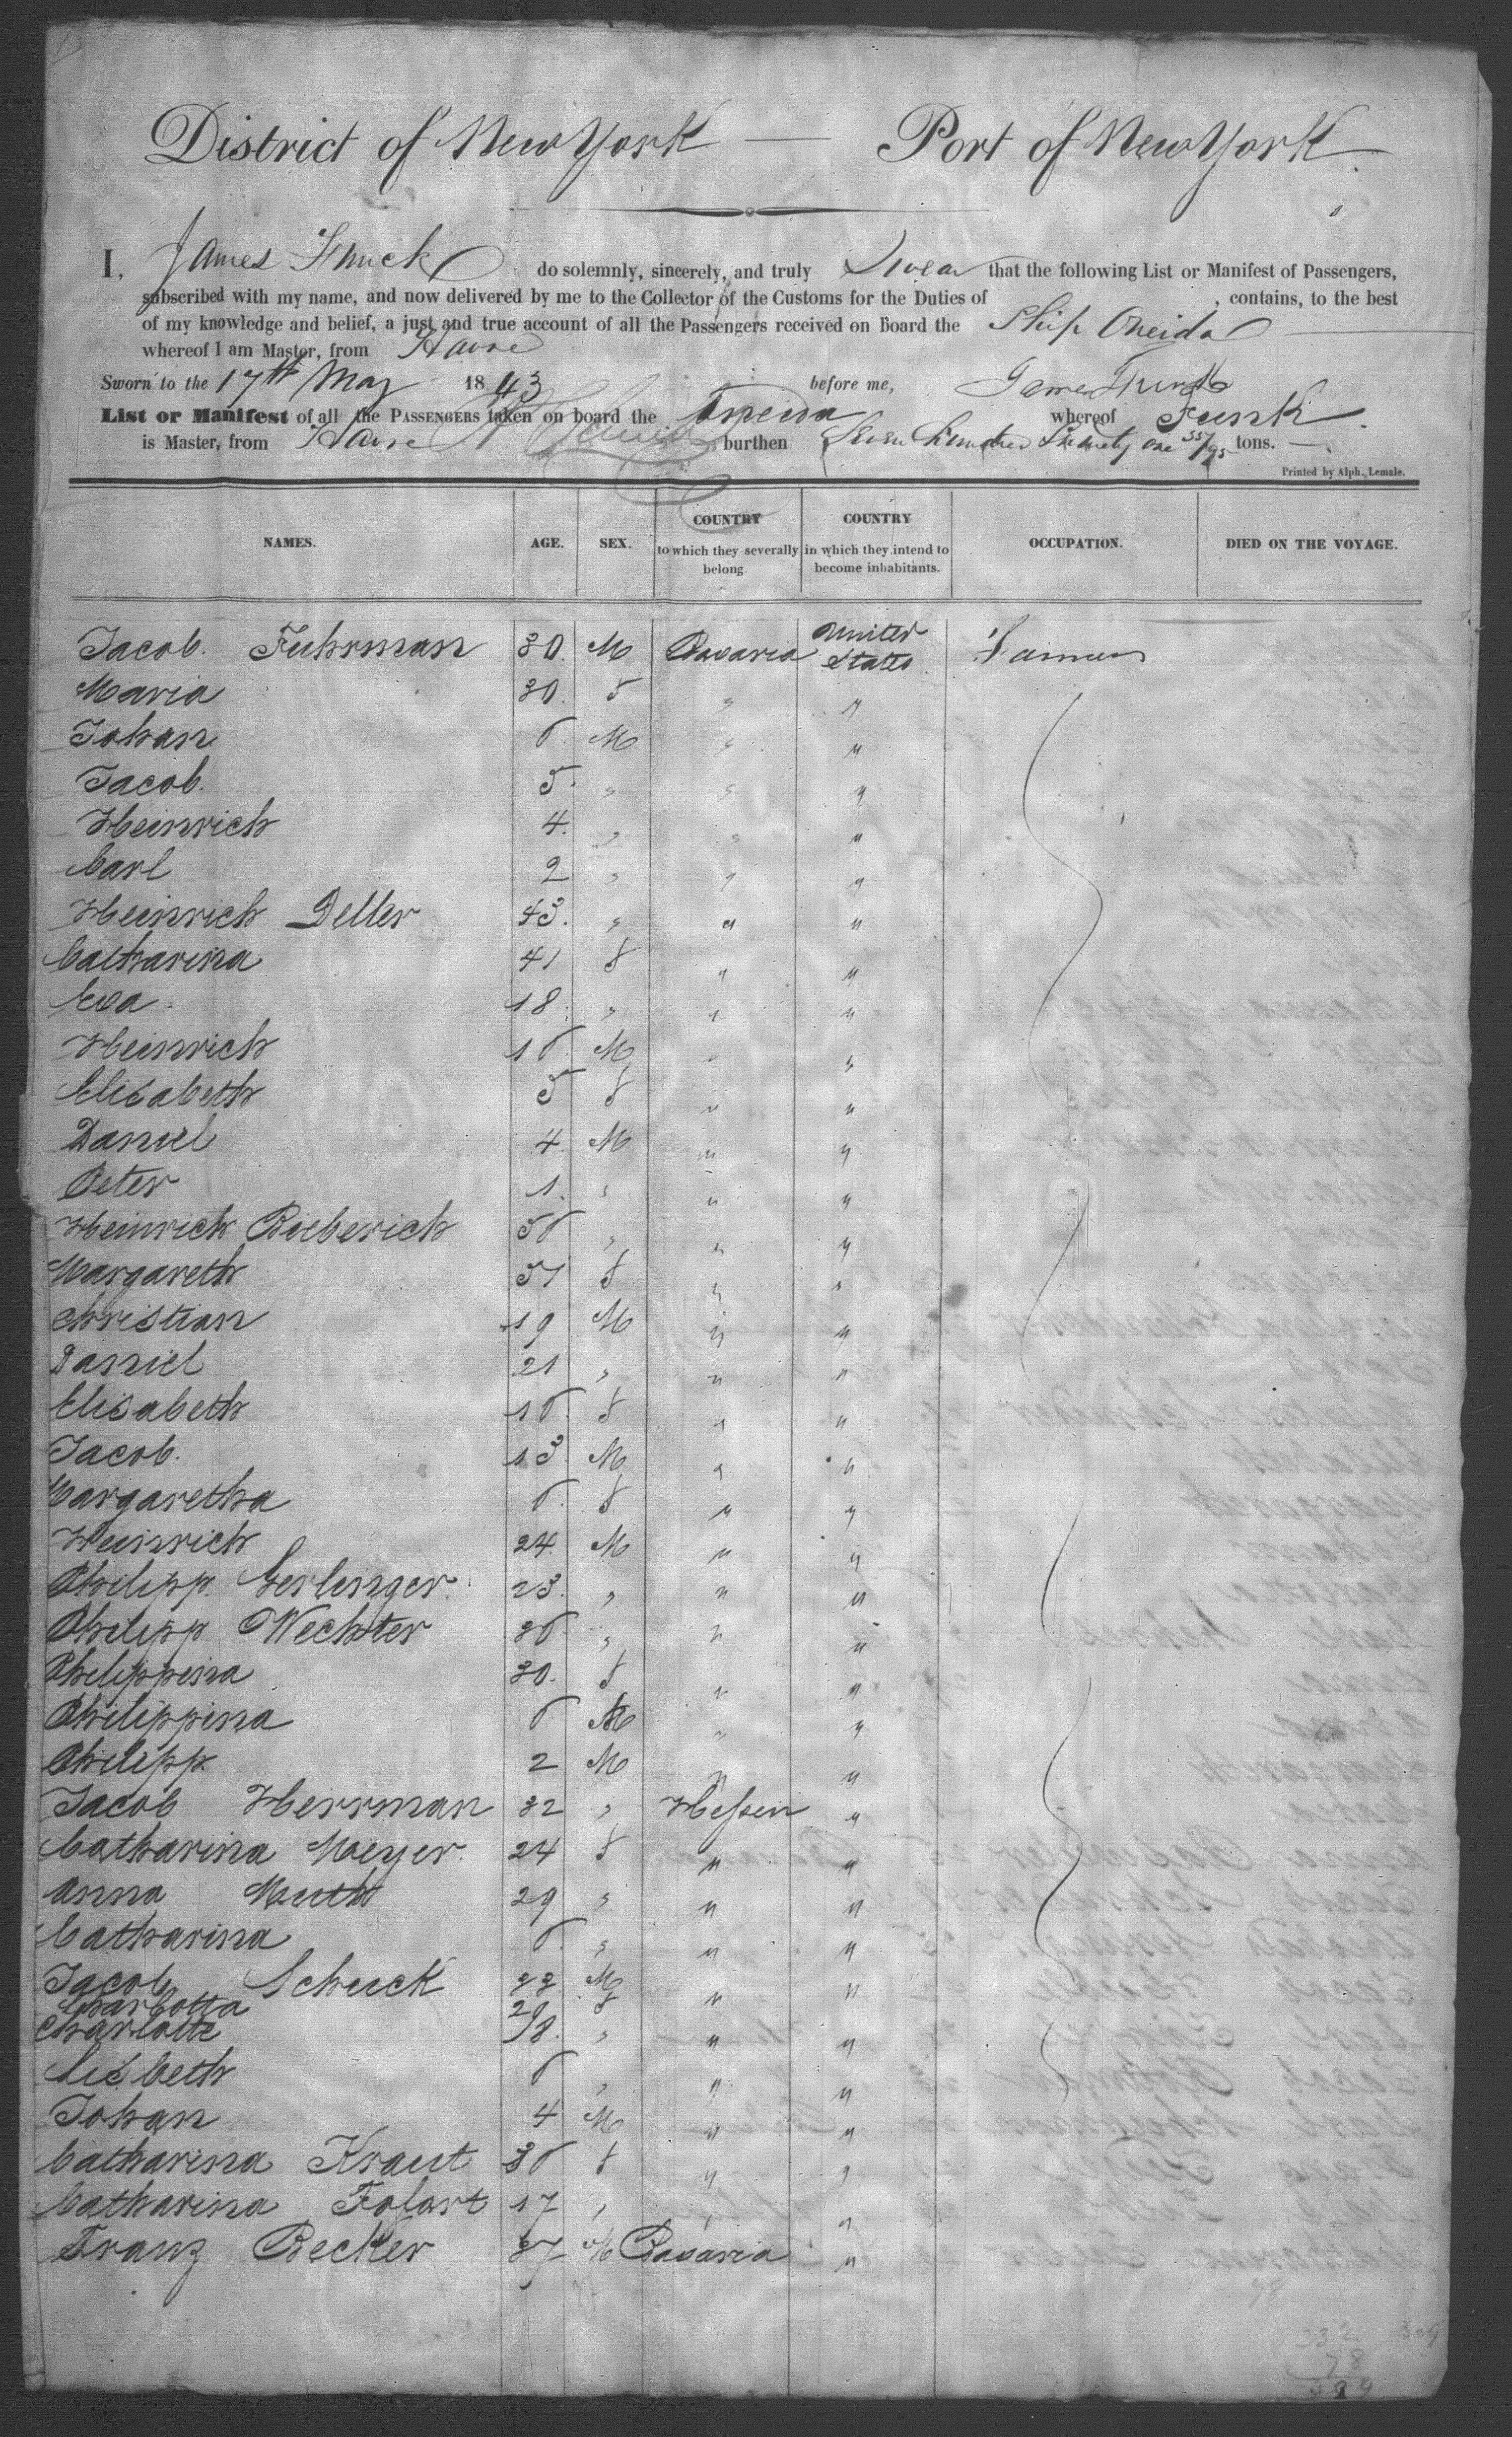 District of New York — Port of New York
I, James Funck do solemnly, sincerely, and truly Swear that the following List or Manifest of Passengers,
subscribed with my name, and now delivered by me to the Collector of the Customs for the Duties of , contains, to the best
of my knowledge and belief, a just and true account of all the Passengers received on board the Ship Oneida
whereof I am Master, from Havre
Sworn to the 17th May 1843 before me, James Funck
List or Manifest of all the PASSENGERS taken on board the Oneida whereof Funk
is Master, from Havre burthen Seven hundred Ninety one 55/95 tons.
Printed by Alph. Lemale.
NAMES. AGE. SEX. COUNTRY to which they severally belong. COUNTRY in which they intend to become inhabitants. OCCUPATION. DIED ON THE VOYAGE.
Jacob. Fuhrman 30. M Bavaria United States Farmer
Maria 30. F " "
Johan 6. M " "
Jacob. 5. " " "
Heinrich 4. " " "
Carl 2 " " "
Heinrich Deller 43. " " "
Catharina 41 F " "
Eva. 18. " " "
Heinrich 16. M " "
Elisabeth 5 F " "
Daniel 4. M " "
Peter 1. " " "
Heinrich Bieberich 56 " " "
Margareth 51 F " "
Christian 19 M " "
Daniel 21 " " "
Elisabeth 16. F " "
Jacob. 13 M " "
Margaretha 6. F " "
Heinrich 24. M " "
Philipp. Gerlinger. 23. " " "
Philipp Wechter 36 " " "
Philippina 30. F " "
Philippina 6 M " "
Philipp. 2 M " "
Jacob Herrman 32 " Hessen "
Catharina Meyer. 24 F " "
Anna Muth 29 " " "
Catharina 6. " " "
Jacob Schuck 33 M " "
Charlotta 29 F
Charlotte 8. " " "
Lisbeth 6 " " "
Johan 4 M " "
Catharina Kraut 36 F " "
Catharina Folgart 17 " " "
Franz Becker 37 M Bavaria "
232
78